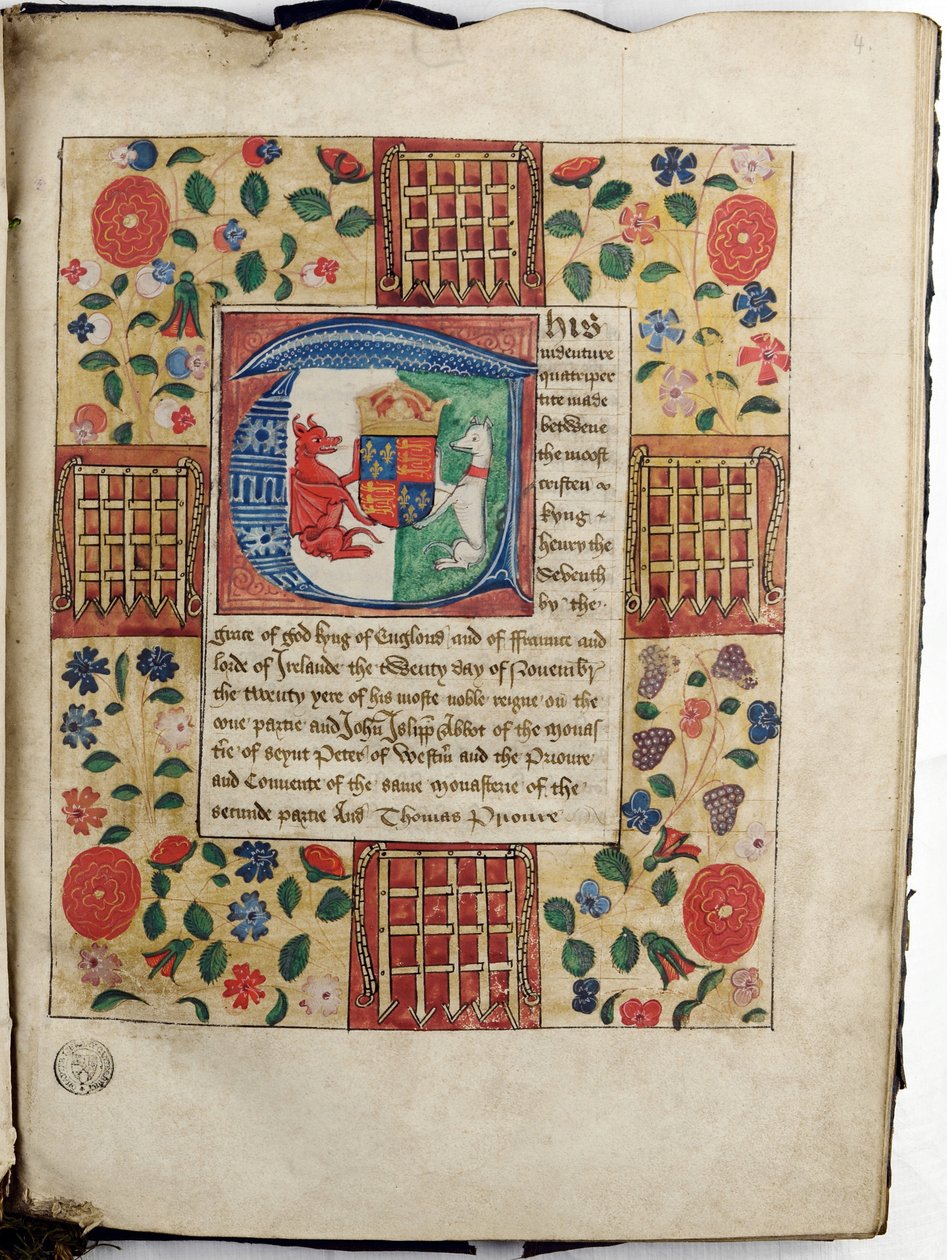 4.
This
indenture
quatriper
tite made
betwene
the moost
cristen
kyng
henry the
Seventh
by the
grace of god kyng of Englond and of ffraunce and
lorde of Irelande the twenty day of Novembr
the twenty yere of his moste noble reigne on the
one partie and John Islipp Abbot of the monas
t'ie of seynt Peter of Westm̃ and the Prioure
and Convente of the same monasterie of the
secunde partie And Thomas Prioure